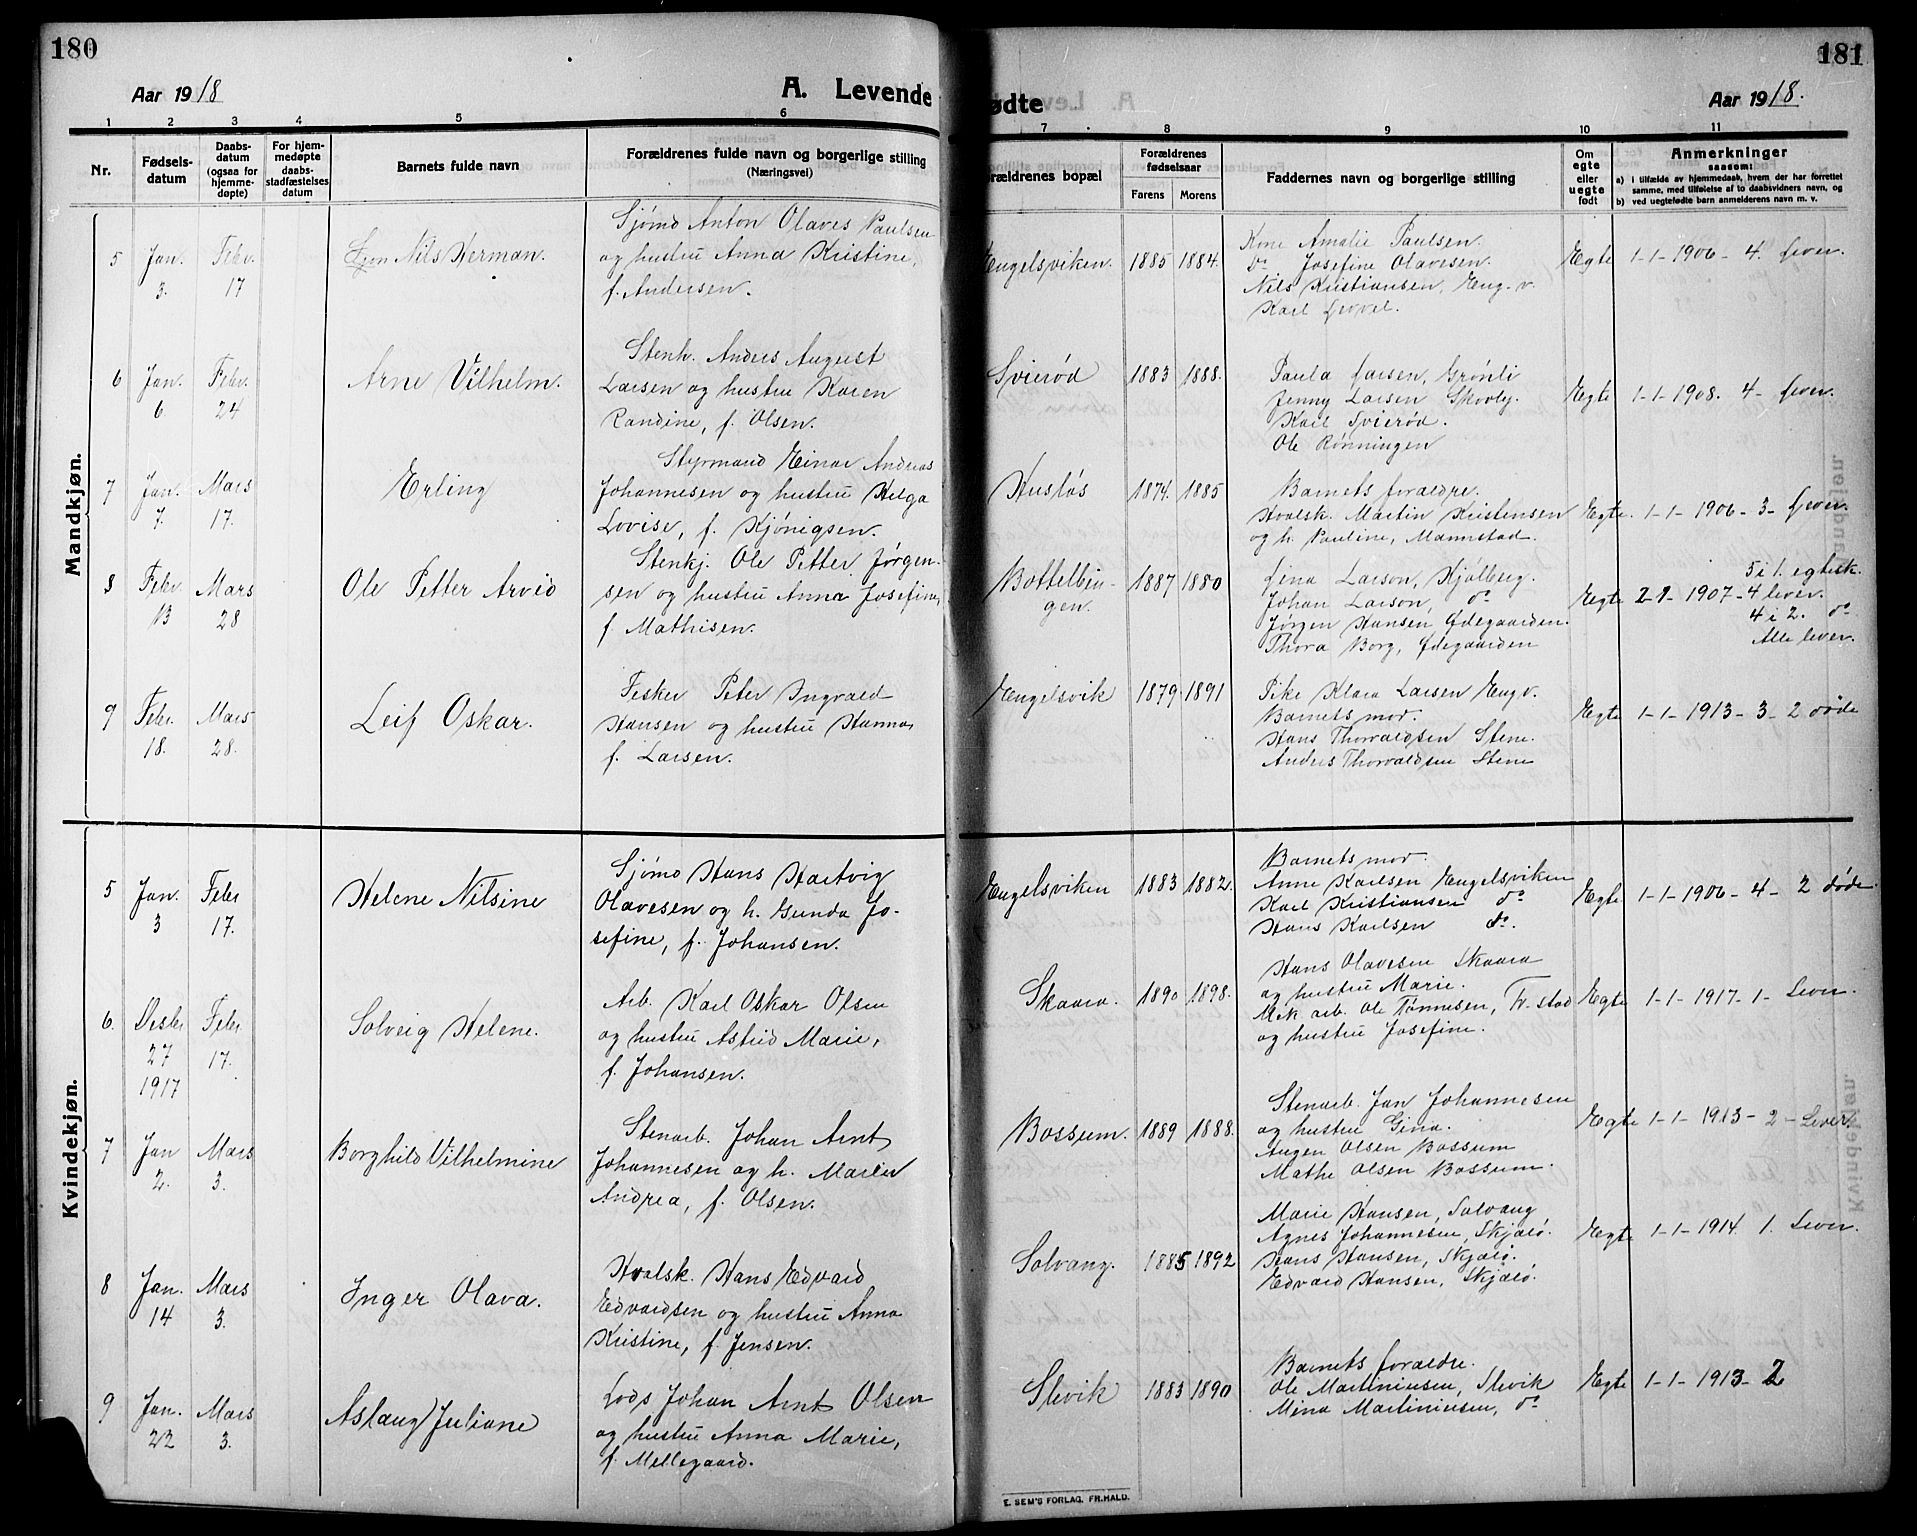 180
Aar 1918
A. Levende
1 2 3 4 5 6
Nr.
Fødsels-
datum
Daabs-
datum
(ogsaa for
hjemme-
døpte)
For hjem-
medøpte
daabs-
stadfæstelses
datum
Barnets fulde navn
Forældrenes fulde navn og borgerlige stilling
(Næringsvei)
Mandkjøn.
5 Jan. 3. Febr. 17 Nils Herman.
Sjømd Anton Olaves Paulsen
og hustru Anna Kristine,
f. Andersen.
6 Jan. 6. Febr. 24 Arne Vilhelm.
Stenh. Anders August
Larsen og hustru Karen
Randine, f. Olsen.
7 Jan. 7. Mars 17. Erling
Styrmand Einar Andreas
Johannesen og hustru Helga
Lovise, f. Kjønigsen.
8 Febr. 13 Mars 28 Ole Petter Arvid
Stenkj. Ole Petter Jørgen-
sen og hustru Anna Josefine,
f. Mathisen.
9 Febr. 18. Mars 28. Leif Oskar.
Fisker Peter Ingvald
Hansen og hustru Hanna
f. Larsen.
Kvindekjøn.
5 Jan. 3 Febr 17. Helene Nilsine
Sjømd Hans Hartvig
Olavesen og h. Gunda Jo-
sefine, f. Johansen.
6. Desbr 27 1917 Febr 17. Solveig Helene.
Arb. Karl Oskar Olsen
og hustru Astrid Marie,
f. Johansen.
7 Jan 2. Mars 3. Borghild Vilhelmine
Stenarb. Johan Arnt
Johannesen og h. Maren
Andrea, f. Olsen.
8 Jan. 14 Mars 3. Inger Olava.
Hvalsk. Hans Edvard
Edvardsen og hustru Anna
Kristine, f. Jensen.
9 Jan. 22 Mars 3. Aslaug Juliane
Lods Johan Arnt Olsen
og hustru Anna Marie,
f. Mellegaard.
181
ødte
Aar 1918.
7 8 9 10 11
orældrenes bopæl
Forældrenes
fødselsaar
Farens Morens
Faddernes navn og borgerlige stilling
Om
egte
eller
uegte
født
Anmerkninger
saasom:
a) i tilfælde av hjemmedaab, hvem der har forrettet
samme, med tilføielse af to daabsvidners navn, og
b) ved uegtefødte barn anmelderens navn m. v.
Engelsviken. 1885 1884.
Kone Amalie Paulsen.
do Josefine Olavesen.
Nils Kristiansen, Eng.v.
Karl
Egte 1-1-1906-4. lever.
Svierød 1883 1888.
Paula Larsen, Grønli
Jenny Larsen Skovly.
Karl Svierød.
Ole Rønningen
Egte 1-1-1908. 4- lever.
Husløs 1874. 1885
Barnets foraldre.
Hvalsk. Martin Kristensen
og h. Pauline, Mannstad.
Egte. 1-1-1906-3- lever.
Bottelbin-
gen. 1887 1880
Gina Larson, Kjølberg.
Johan Larson, do
Jørgen Hansen Ødegaarden.
Thora Borg, Ødegaarden
Egte 2-1-1907-
5 i 1. egtesk.
4 lever.
4 i 2. do
Alle lever.
Engelsvik 1879. 1891
Pike Klara Larsen Eng v.
Barnets mor.
Hans Thorvaldsen Stene.
Anders Thorvaldsen Stene
Egte 1-1-1913-3-2 døde
Engelsviken 1883 1882.
Barnets mor.
Anne Karlsen Engelsviken
Karl Kristiansen do
Hans Karlsen do.
Egte 1-1-1906-4-2 døde.
Skaara. 1890 1898.
Hans Olavesen Skaara
og hustru Marie.
Mek arb. Ole Tønnesen, Fr.stad
og hustru Josefine.
Egte 1-1-1917-1- Lever.
Bossum. 1889 1888.
Stenarb. Jan Johannesen
og hustru Gina.
Augen Olsen Bossum
Mathe Olsen Bossum.
Egte 1-1-1913-2-Lever.
Solvang. 1885 1892
Marie Hansen, Solvang
Agnes Johannesen, Skjælø.
Hans Hansen, Skjælø.
Edvard Hansen, Skjælø.
Egte 1-1-1914. 1. Lever.
Slevik 1883 1890
Barnets foraldre.
Ole Martiniusen, Slevik
Mina Martiniusen, do
Egte 1-1-1913-2
E. SEM'S FORLAG, FR.HALD.